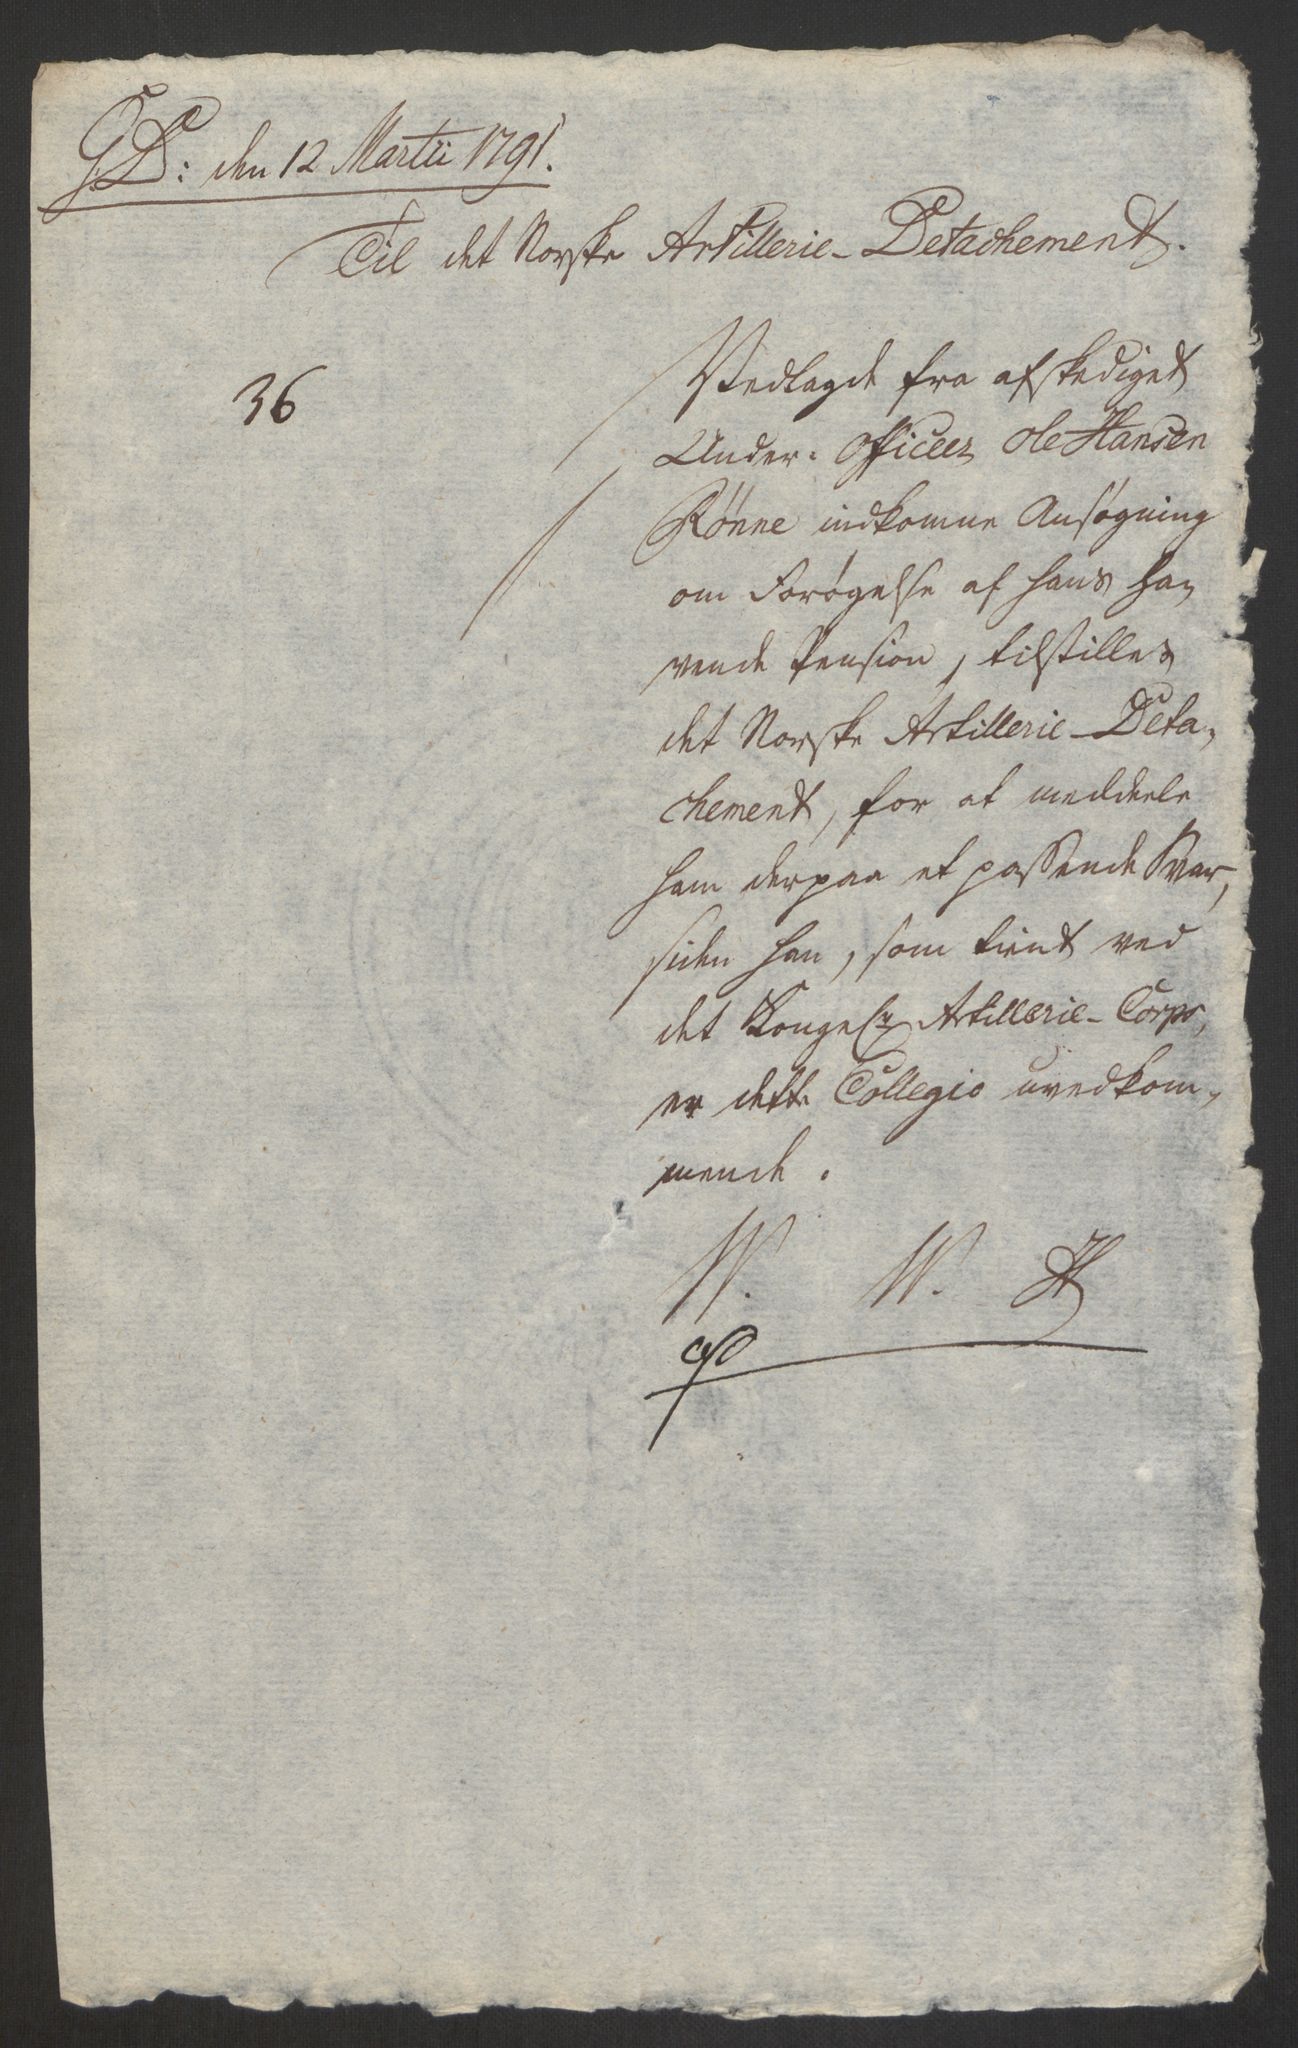 G.D: den 12 Martii 1791.
Til det Norske Artillerie-Detachement.
36
Vedlagde fra afskediget
Under-Officeer Ole Hansen
Rönne indkomne Ansøgning
om Forøgelse af hans ha-
vende Pension, tilstilles
det Norske Artillerie-Deta-
chement, for at meddeele
ham derpaa et passende Svar,
siden han, som tient ved
det Kongel. Artillerie-Corps,
er dette Collegio uvedkom-
mende.
W. W. H